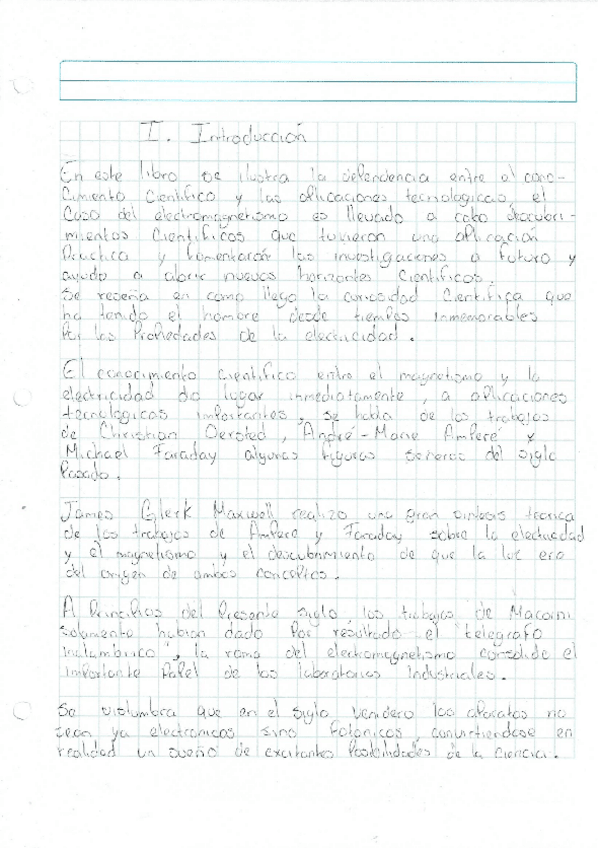 I. Introducción
En este libro se ilustra la dependencia entre el cono-
cimiento científico y las aplicaciones tecnologicas, el
Caso del electromagnetismo es llevado a cabo descubri-
mientos Científicos que tuvieron una aplicación
Practica y fomentaron las investigaciones a futuro y
ayudo a abrir nuevos horizontes Científicos.
Se reseña en como llego la curiosidad Científica que
ha tenido el hombre desde tiempos inmemorables
Por las Propiedades de la electricidad.
El conocimiento Científico entre el magnetismo y la
electricidad da lugar inmediatamente, a aplicaciones
tecnológicas importantes, se habla de los trabajos
de Christian Oersted, André-Marie Ampere y
Michael Faraday algunas figuras señeras del siglo
Pasado.
James Clerk Maxwell realizo una gran sintesis teorica
de los trabajos de Ampere y Faraday sobre la electricidad
y el magnetismo y el descubrimiento de que la luz era
del origen de ambos conceptos.
A Principios del Presente siglo los trabajos de Macorni
solamente habian dado Por resultado el "telegrafo
inalambrico", la rama del electromagnetismo consolide el
importante Papel de los laboratorios industriales.
Se vislumbra que en el siglo venidero los aparatos no
sean ya electronicos sino fotonicos, convirtiendose en
realidad un sueño de excitantes Posibilidades de la ciencia.